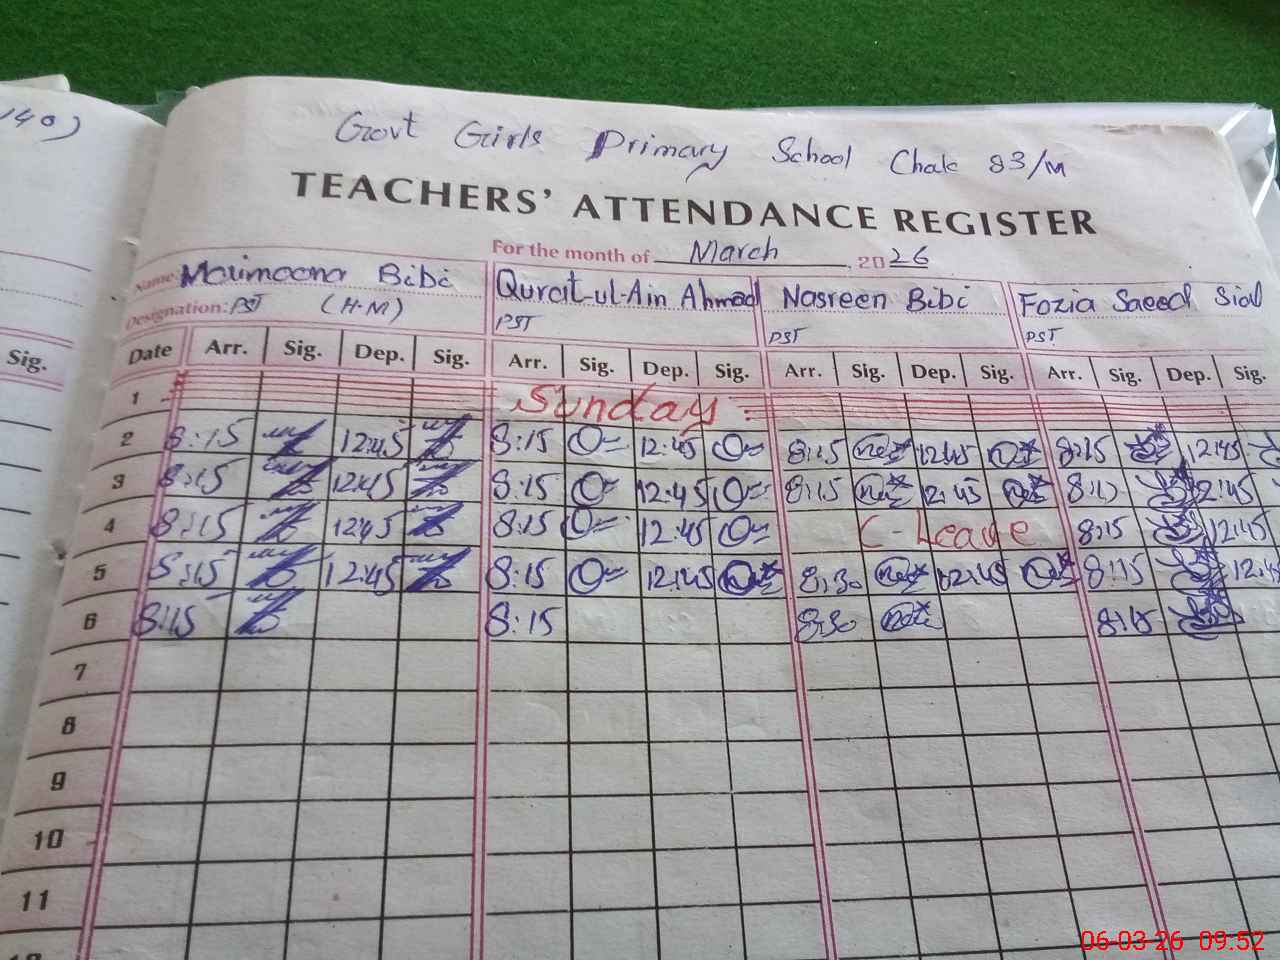 140)
Govt Girls Primary School Chak 83/M
TEACHERS' ATTENDANCE REGISTER
For the month of March 2026
Name: Maimoona Bibi Qurat-ul-Ain Ahmad Nasreen Bibi Fozia Saeed Sial
Designation: PST (H.M) PST PST PST
Sig. Date Arr. Sig. Dep. Sig. Arr. Sig. Dep. Sig. Arr. Sig. Dep. Sig. Arr. Sig. Dep. Sig.
1 Sunday
2 8:15 12:45 8:15 12:45 8:15 12:45 8:15 12:45
3 8:15 12:45 8:15 12:45 8:15 12:45 8:15 12:45
4 8:15 12:45 8:15 12:45 C-Leave 8:15 12:45
5 8:15 12:45 8:15 12:45 8:30 12:45 8:15 12:45
6 8:15 8:15 8:30 8:15
7
8
9
10
11
06-03-26 09:52